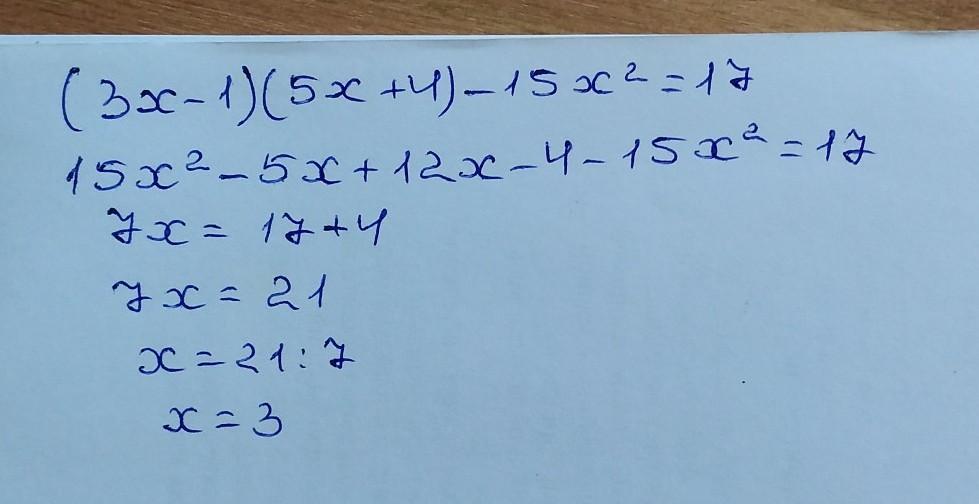 (3x-1)(5x+4)-15x²=17
15x²-5x+12x-4-15x²=17
7x=17+4
7x=21
x=21:7
x=3